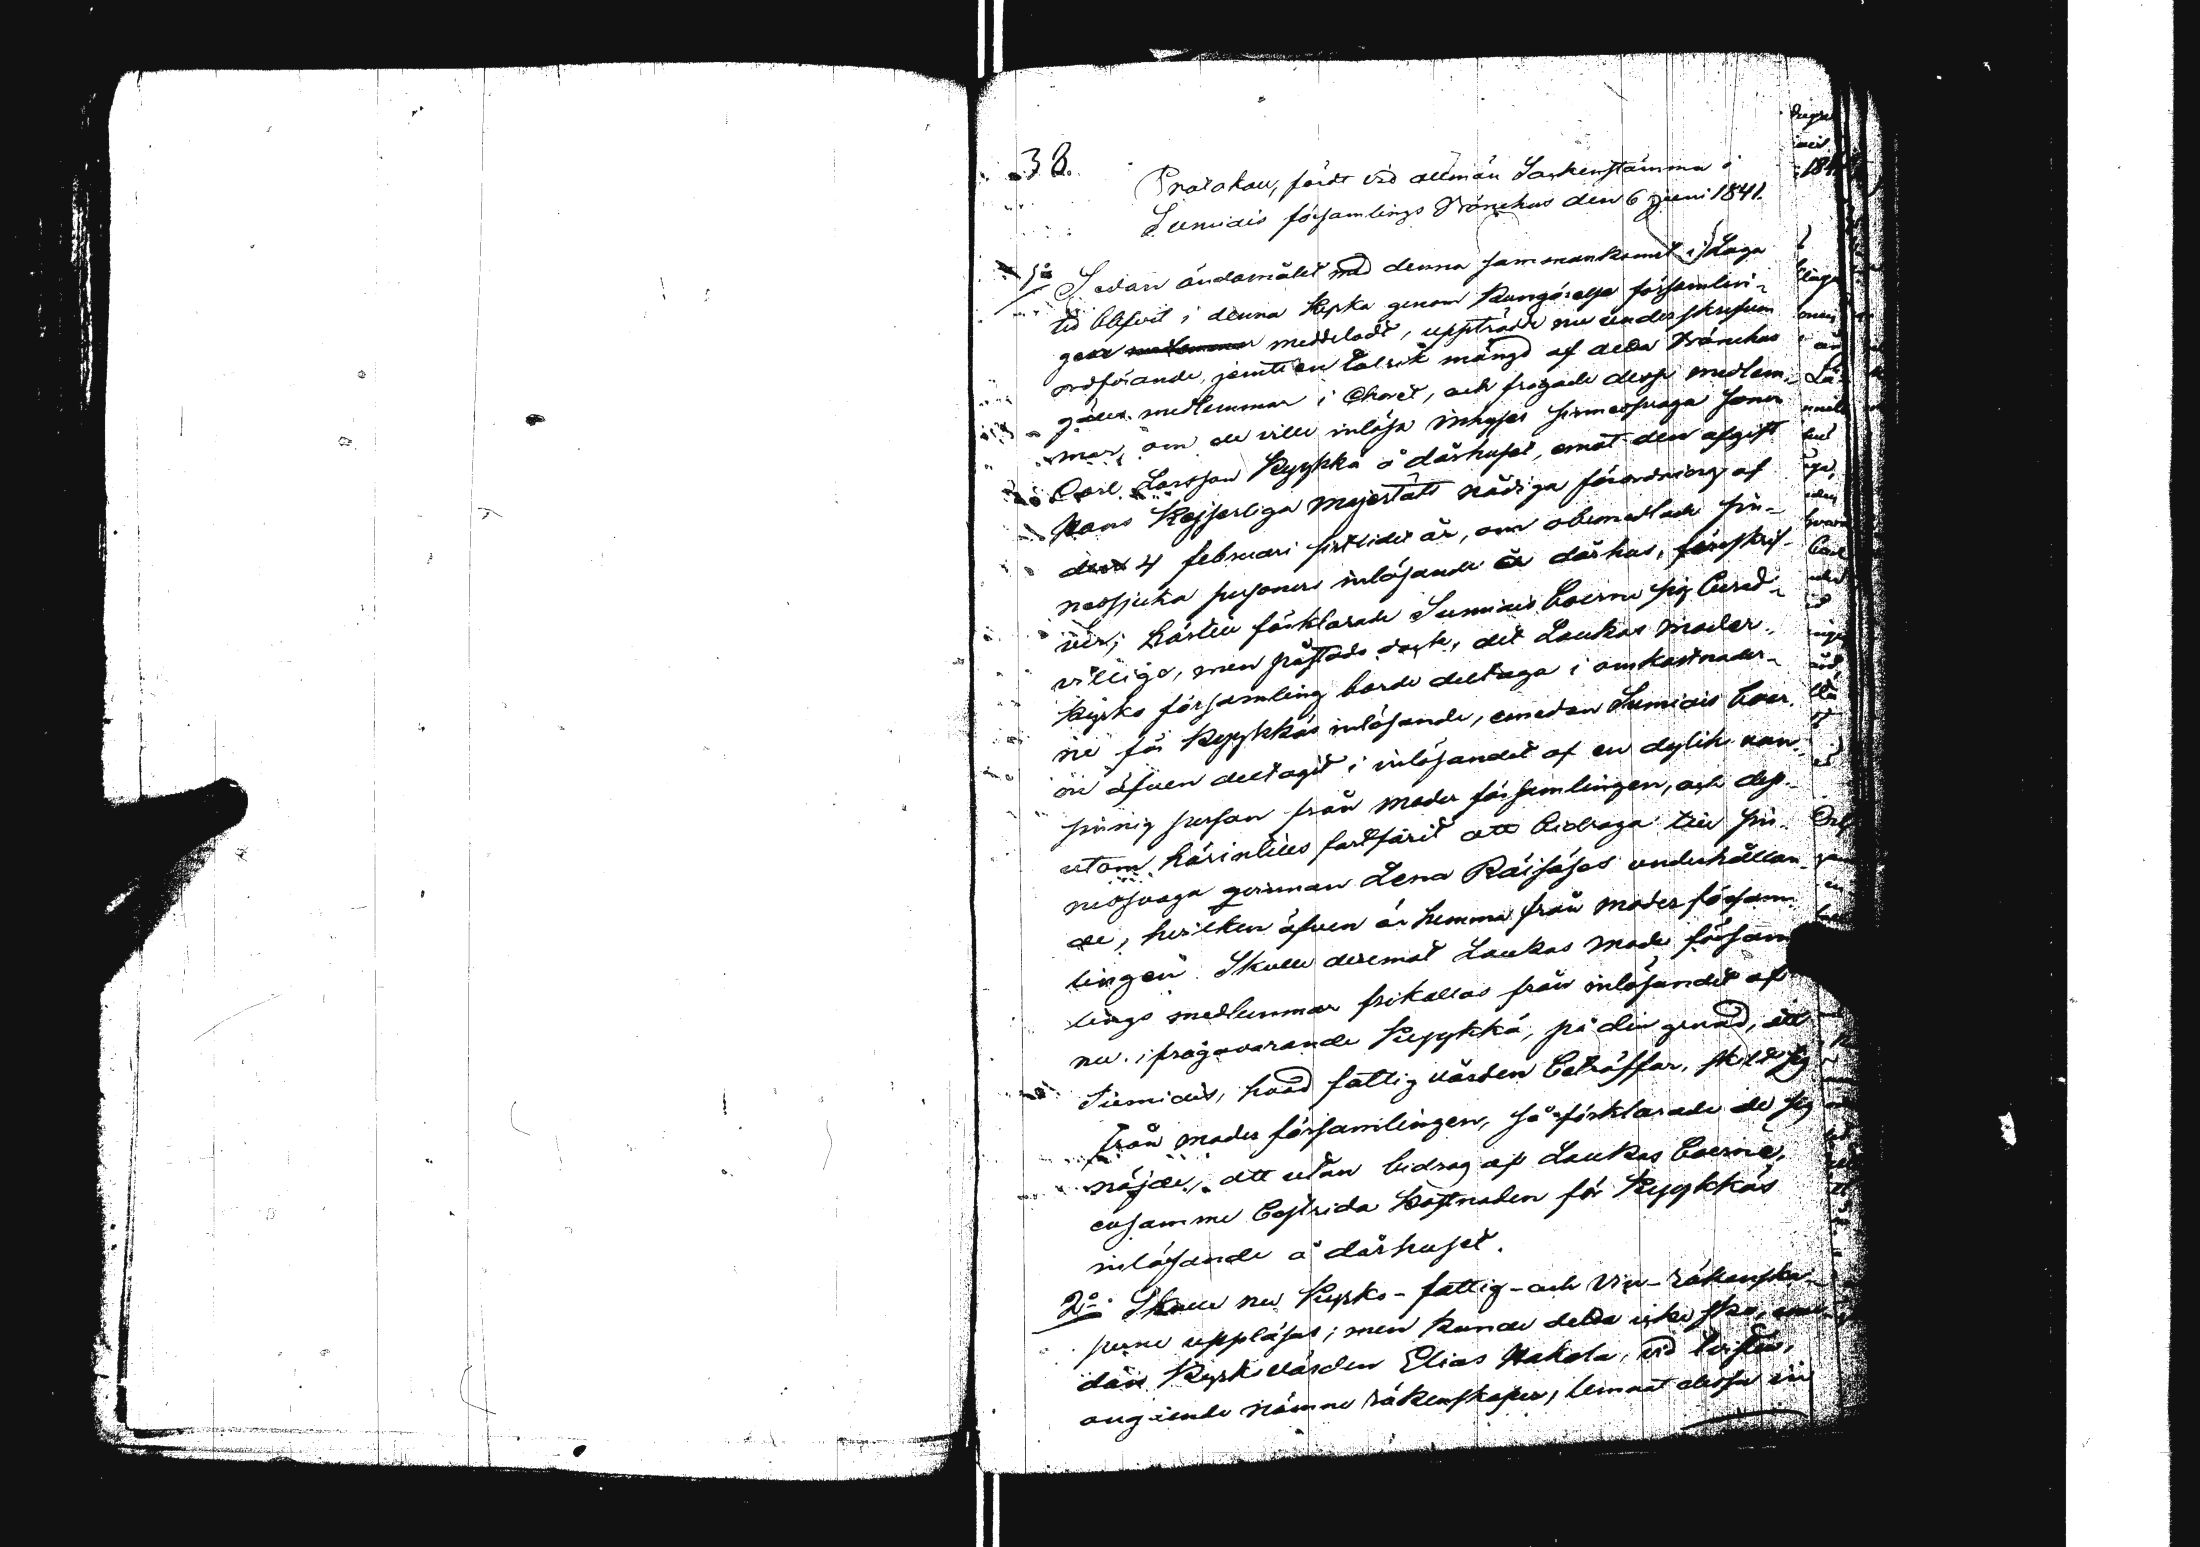 38.
Protokoll, fördt vid allmän Sockenstämma i
Sumiais församlings Bönehus den 6 juni 1841.
1o Sedan ändamålet med denna sammankomst i Laga
tid blifvit i denna kyrka genom Kungörelse församlin-
gens meddeladt, uppträdde nu underskrefven
ordförande, jemte en talrik mängd af detta Bönehus
medlemmar i Choret, och frågade dess medlem-
mar, om de ville inlösa inhyses sinnessvaga sonen
Carl Larsson Kyykkä å dårhuset, emot den afgift
Hans Kejserliga Majestäts nådiga förordning af
den 4 februari sistlidet år, om obemedlade sin-
nessjuka personers inlösande å dårhus, föreskrif-
ver; härtill förklarade Sumiais boerne sig bered-
villige, men påstodo dock, det Laukas moder-
kyrko församling borde deltaga i omkostnader-
ne för Kyykkäs inlösande, emedan Sumiais boer-
ne äfven deltagit i inlösandet af en dylik van-
sinnig person från moder församlingen, och dess-
utom härintills fortfarit att bidraga till sin-
nessvaga qvinnan Lena Räihäs underhållan-
de, hvilken äfven är hemma från moder församm-
lingen. Skulle deremot Laukas moder försam
lings medlemmar frikallas från inlösandet af
nu ifrågavarande Kyykkä, på den grund, att
Sumiais, hvad fattigvården beträffar, skildt sig
från moder församlingen, så förklarade de sig
nöjde, att utan bidrag af Laukas boerne,
ensamme bestrida kostnaden för Kyykkäs
inlösande å dårhuset.
2o Skulle nu Kyrko- fattig- och Vin- räkenska-
perne uppläsas; men kunde detta icke ske, eme-
dan Kyrkovärden Elias Hakola, vid tvisten,
angående nämne räkenskaper, lemnat dessa in